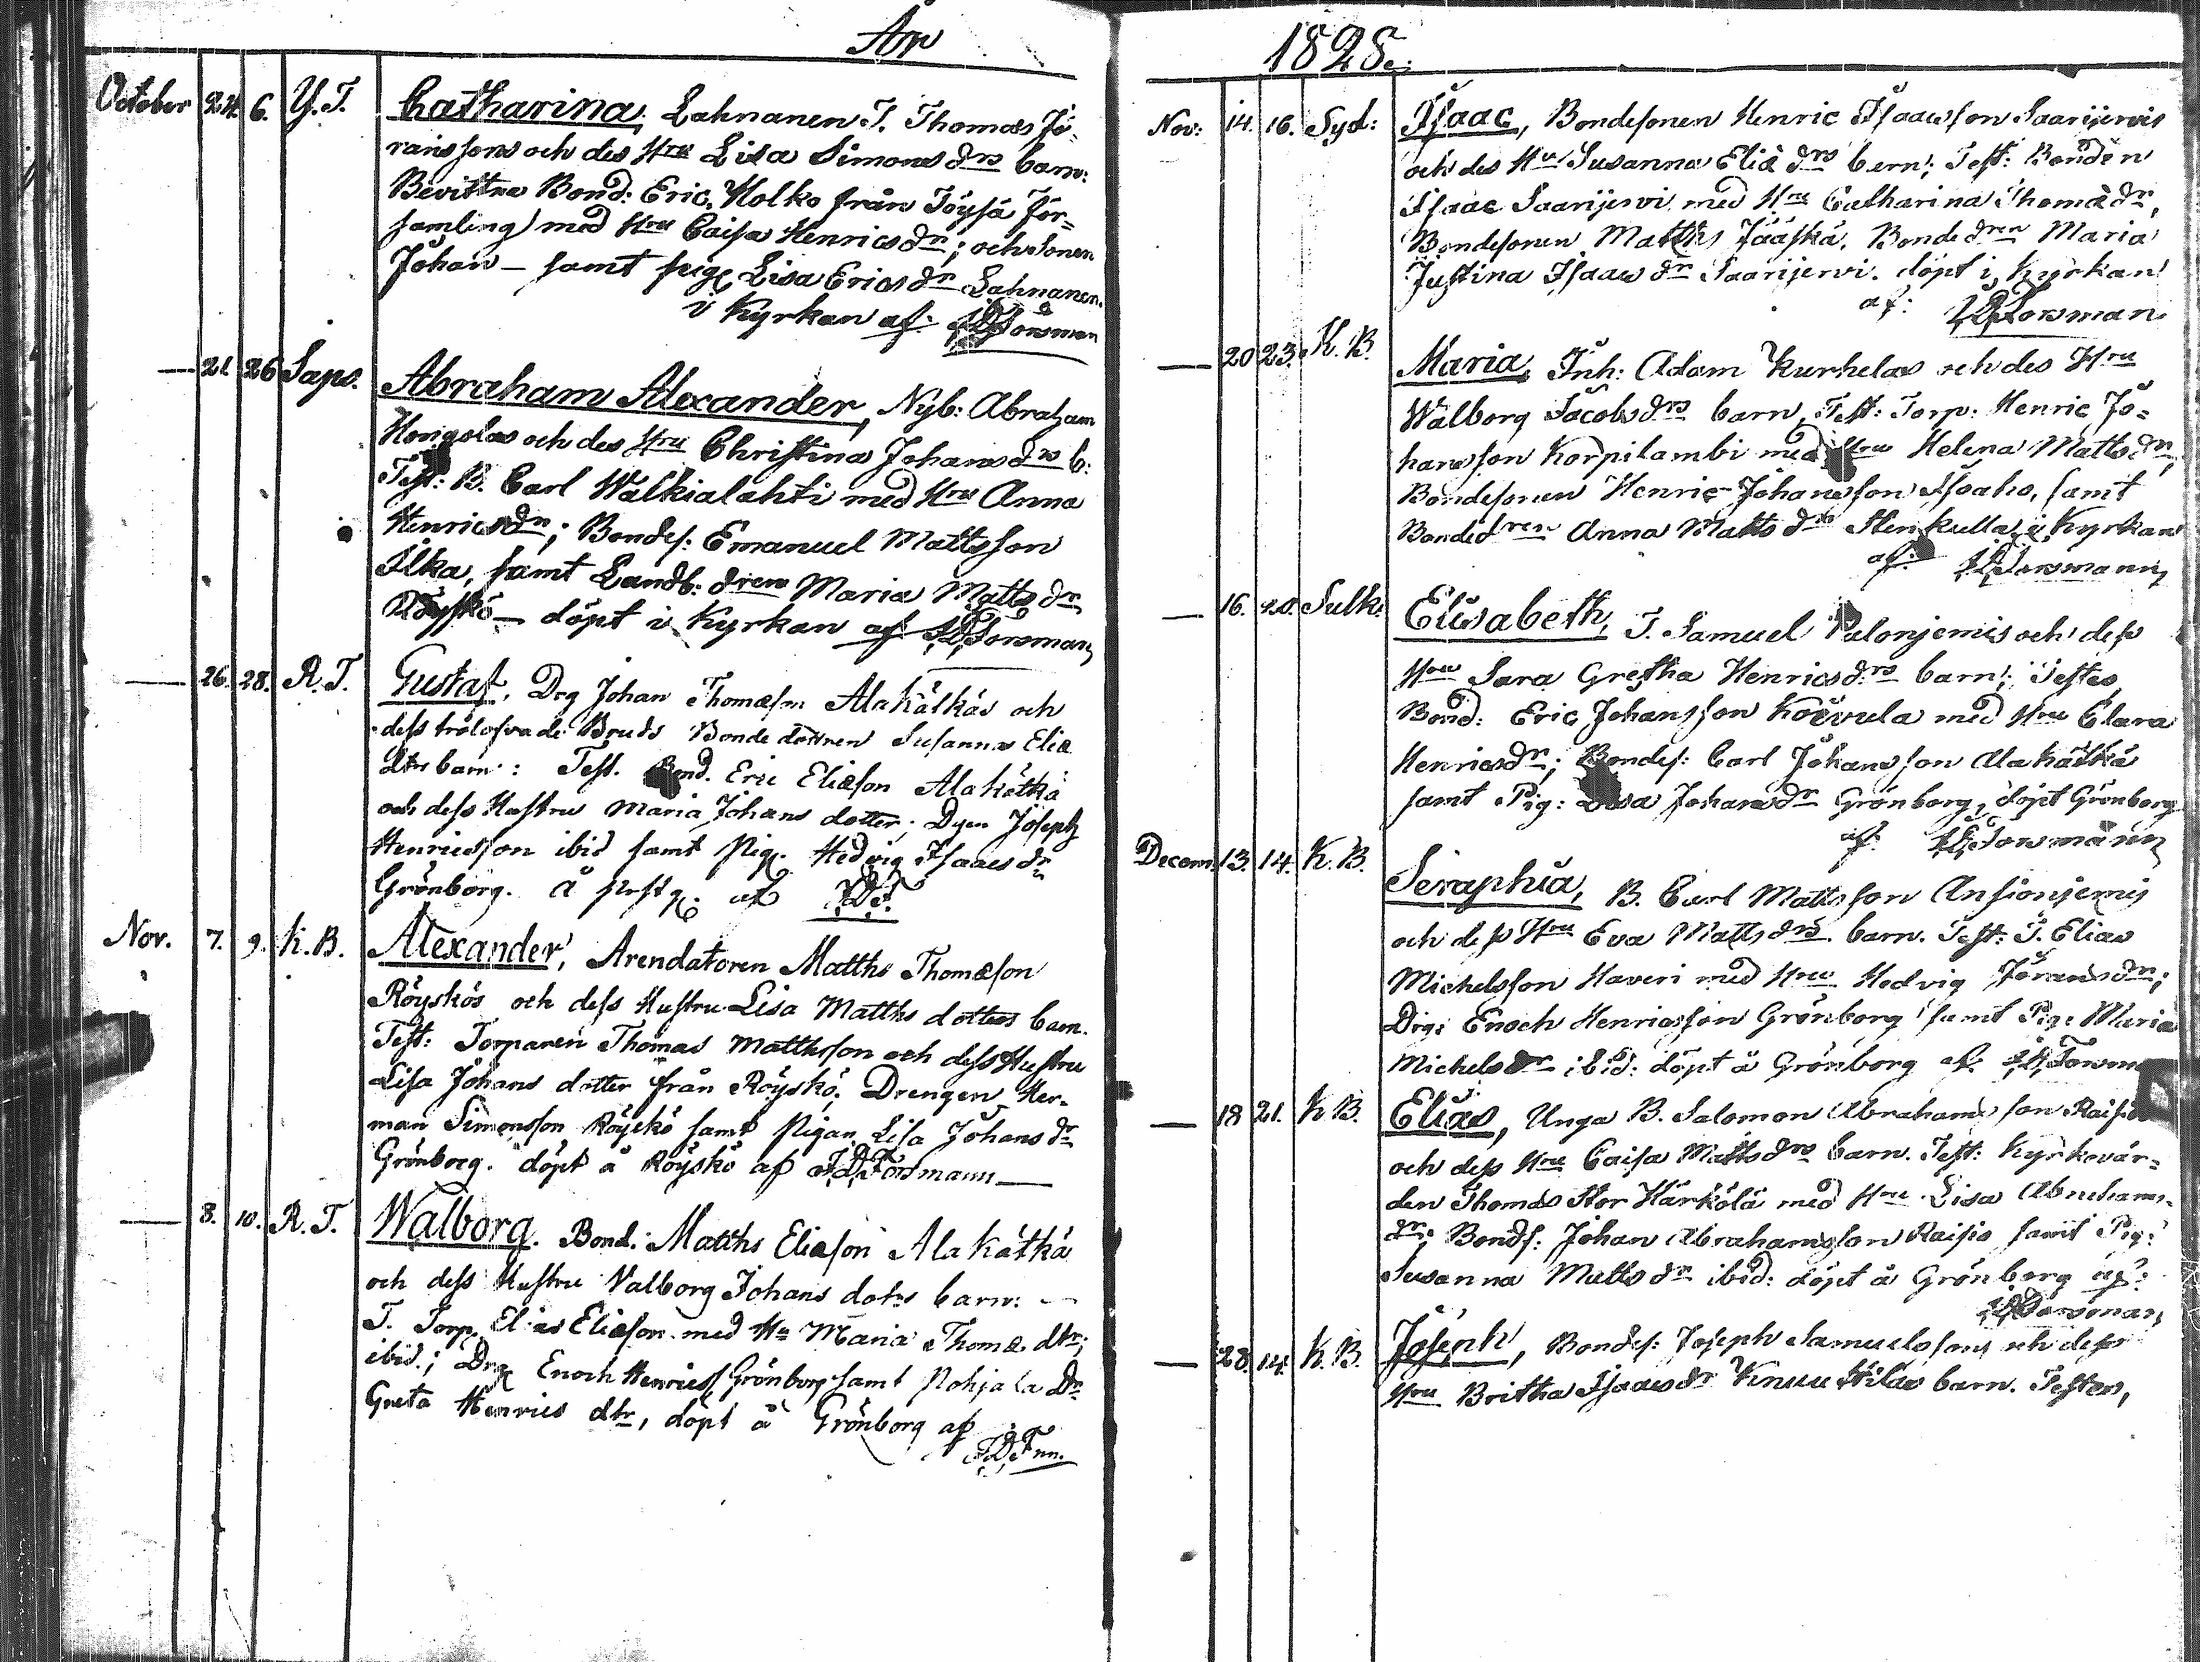 År
October 24. 6. Y.T. Catharina, Lahnanen T. Thomas Jö-
ranssons och des Hru Lisa Simons drs barn:
Bevittna Bond: Eric Holko från Töysä För-
samling med Hru Caisa Henrics dr; och Sonen
Johan — samt pig: Lisa Erics dr Lahnanen.
i Kyrkan af. Forsman
— 21. 26 Saps. Abraham Alexander, Nyb: Abraham
Hongolas och des Hru Christina Johans drs b:
Test: B. Carl Walkialahti med Hru Anna
Henrics dr; Bondes: Emanuel Mattsson
Ilka, samt Landb: dren Maria Matts dr
Röyskö — döpt i Kyrkan af Forsman
— 26. 28. R.T. Gustaf, Drg Johan Thomæson Alakätkäs och
dess trolofvade Bruds Bonde dottren Susanna Eliæ
dtrs barn: Test. Bond. Eric Eliæson Alakätkä
och dess Hustru Maria Johans dotter; Dgen Joseph
Henricsson ibid samt Pig. Hedvig Isaacs dr
Grönborg. å prstg. af F.D.F.
Nov. 7. 9. K.B. Alexander, Arendatoren Matths Thomæson
Röyskös och dess Hustru Lisa Matths dotters barn.
Test: Torparen Thomas Matthsson och dess Hustru
Lisa Johans dotter från Röyskö; Drengen Her-
man Simonsson Röyskö samt Pigan Lisa Johans dr
Grönborg. döpt å Röyskö af F.D.Forsmann —
— 8. 10. R.T. Walborg. Bond. Matths Eliæson Alakätkä
och dess Hustru Valborg Johans dotrs barn: —
T. Torp. Elias Eliæson med Hu Maria Thomæ dtr;
ibid.; Drg Enoch Henricss Grönborg samt Pohjala Dr
Greta Henrics dtr, döpt å Grönborg af
F.D.Fnn.
1828.
Nov: 14. 16. Syd: Isaac, Bondesonen Henric Isaacsson Saarijervis
och des Hu Susanna Eliæ drs barn; Test: Bonden
Isaac Saarijervi med Hru Catharina Thomæ dr,
Bondesonen Matths Jääskä, Bonde dren Maria
Justina Isaacs dr Saarijervi. döpt i Kyrkan
af: Forsman
— 20 23. K.B. Maria, Inh: Adam Kurhelas och des Hru
Walborg Jacobs drs barn, Test: Torp: Henric Jo-
hansson Korpilambi med Hru Helena Matts dr;
Bondesonen Henric Johansson Isoaho, samt
Bonded ren Anna Matts dr Stenkulla, i Kyrkan
af: Forsmann
— 16. 20. Sulk: Elisabeth, T. Samuel Palonjemis och dess
Hru Sara Gretha Henrics drs barn; Testes,
Bond: Eric Johansson Koivula med Hru Clara
Henrics dr; Bondes: Carl Johansson Alakätkä
samt Pig: Lisa Johans dr Grönborg, döpt Grönborg
af Forsmann
Decem. 13. 14. K.B. Seraphia, B. Carl Mattsson Ansionjemis
och dess Hru Eva Matts drs barn. Test: T. Elias
Michelsson Haveri med Hru Hedvig Jörans dr;
Drg: Enoch Henricsson Grönborg samt Pig: Maria
Michels dr ibid: döpt å Grönborg af Forsm
— 18 21. K.B. Elias, Unga B. Salomon Abrahams son Raisio
och dess Hru Caisa Matts drs barn. Test: Kyrkovär-
den Thomas Stor Härkölä med Hru Lisa Abrahams-
dr: Bonds: Johan Abrahamsson Raisio samt Pig:
Susanna Matts dr ibid: döpt å Grönborg af:
Forsman
— 28. 14. K.B. Joseph, Bondes: Joseph Samuelssons och dess
Hru Britha Isaacs dr Knuuttilas barn. Testes,